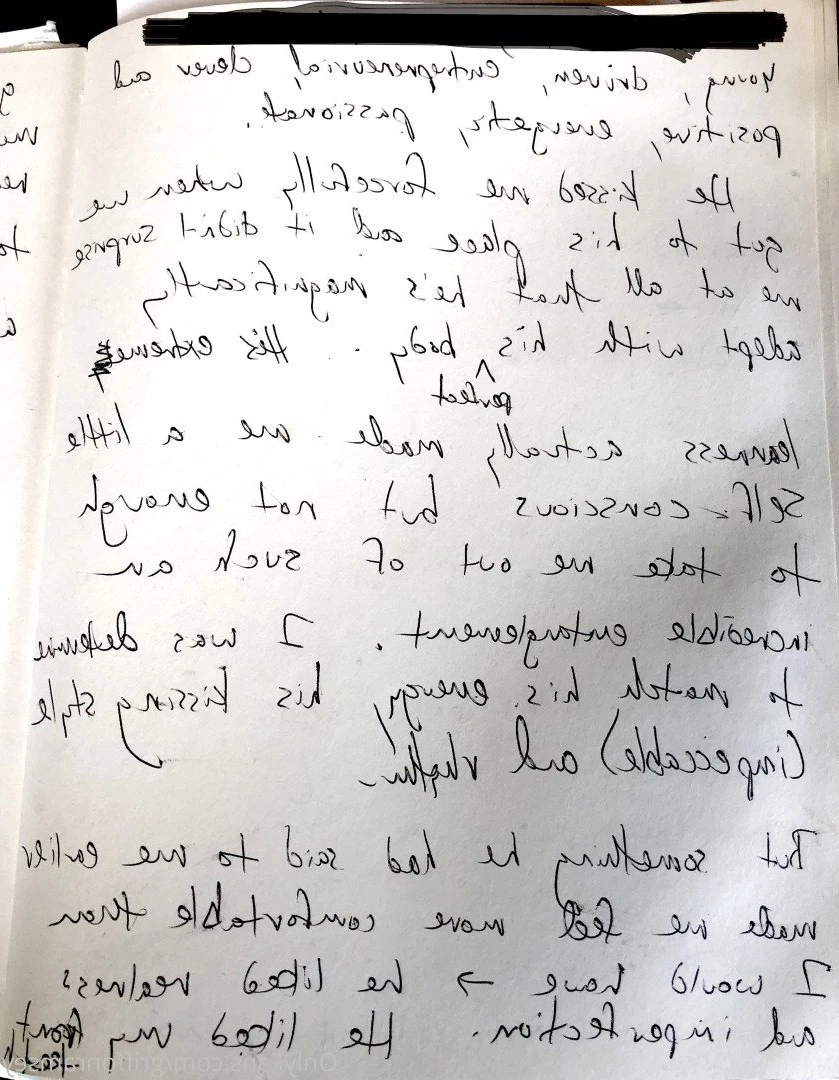 young, driven, entrepreneurial, clever and
positive, energetic, passionate.
He kissed me forcefully when we
got to his place and it didn't surprise
me at all that he's magnificantly
adept with his body. His extreme
perfect
leanness actually made me a little
self-conscious but not enough
to take me out of such an
incredible entanglement. I was determine
to match his energy, his kissing style
(impeccable) and rhythm.
But something he had said to me earlier
made me feel more comfortable than
I would have → he liked realness
and imperfection. He liked my front
OnlyFans.com/griffonramsey